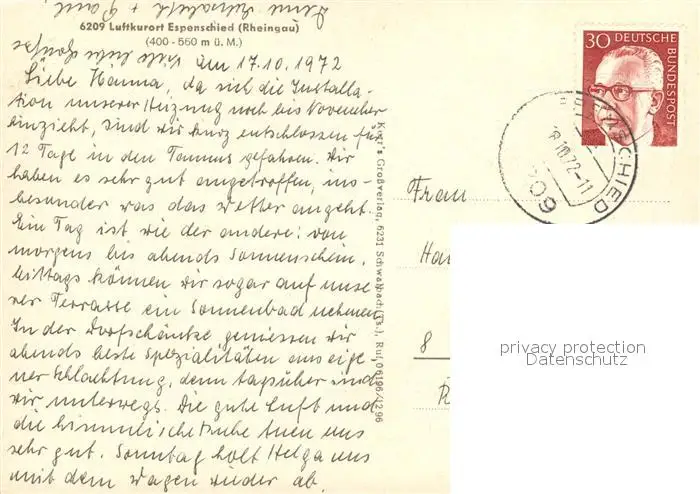 Deine Elisabeth + Paul
6209 Luftkurort Espenschied (Rheingau)
(400-560 m ü. M.)
am 17.10.1972
Liebe Hanna, da sich die Installa-
tion unserer Heizung noch bis November
hinzieht, sind wir kurz entschlossen für
12 Tage in den Taunus gefahren. Wir
haben es sehr gut angetroffen, ins-
besonder was das Wetter angeht.
Ein Tag ist wie der andere: von
morgens bis abends Sonnenschein.
Mittags können wir sogar auf unse
rer Terrasse ein Sonnenbad nehmen.
In der Dorfschänke geniessen wir
abends beste Spezialitäten aus eige
ner Schlachtung, denn tagsüber sind
wir unterwegs. Die gute Luft und
die himmlische Ruhe tuen uns
sehr gut. Sonntag holt Helga uns
mit dem Wagen wieder ab.
Großverlag, 6231 Schwalbach (Ts.), Ruf 06196/1296
30 DEUTSCHE
BUNDESPOST
ESPENSCHIED
18.10.72-11
6209
Frau
Ha
8
privacy protection
Datenschutz